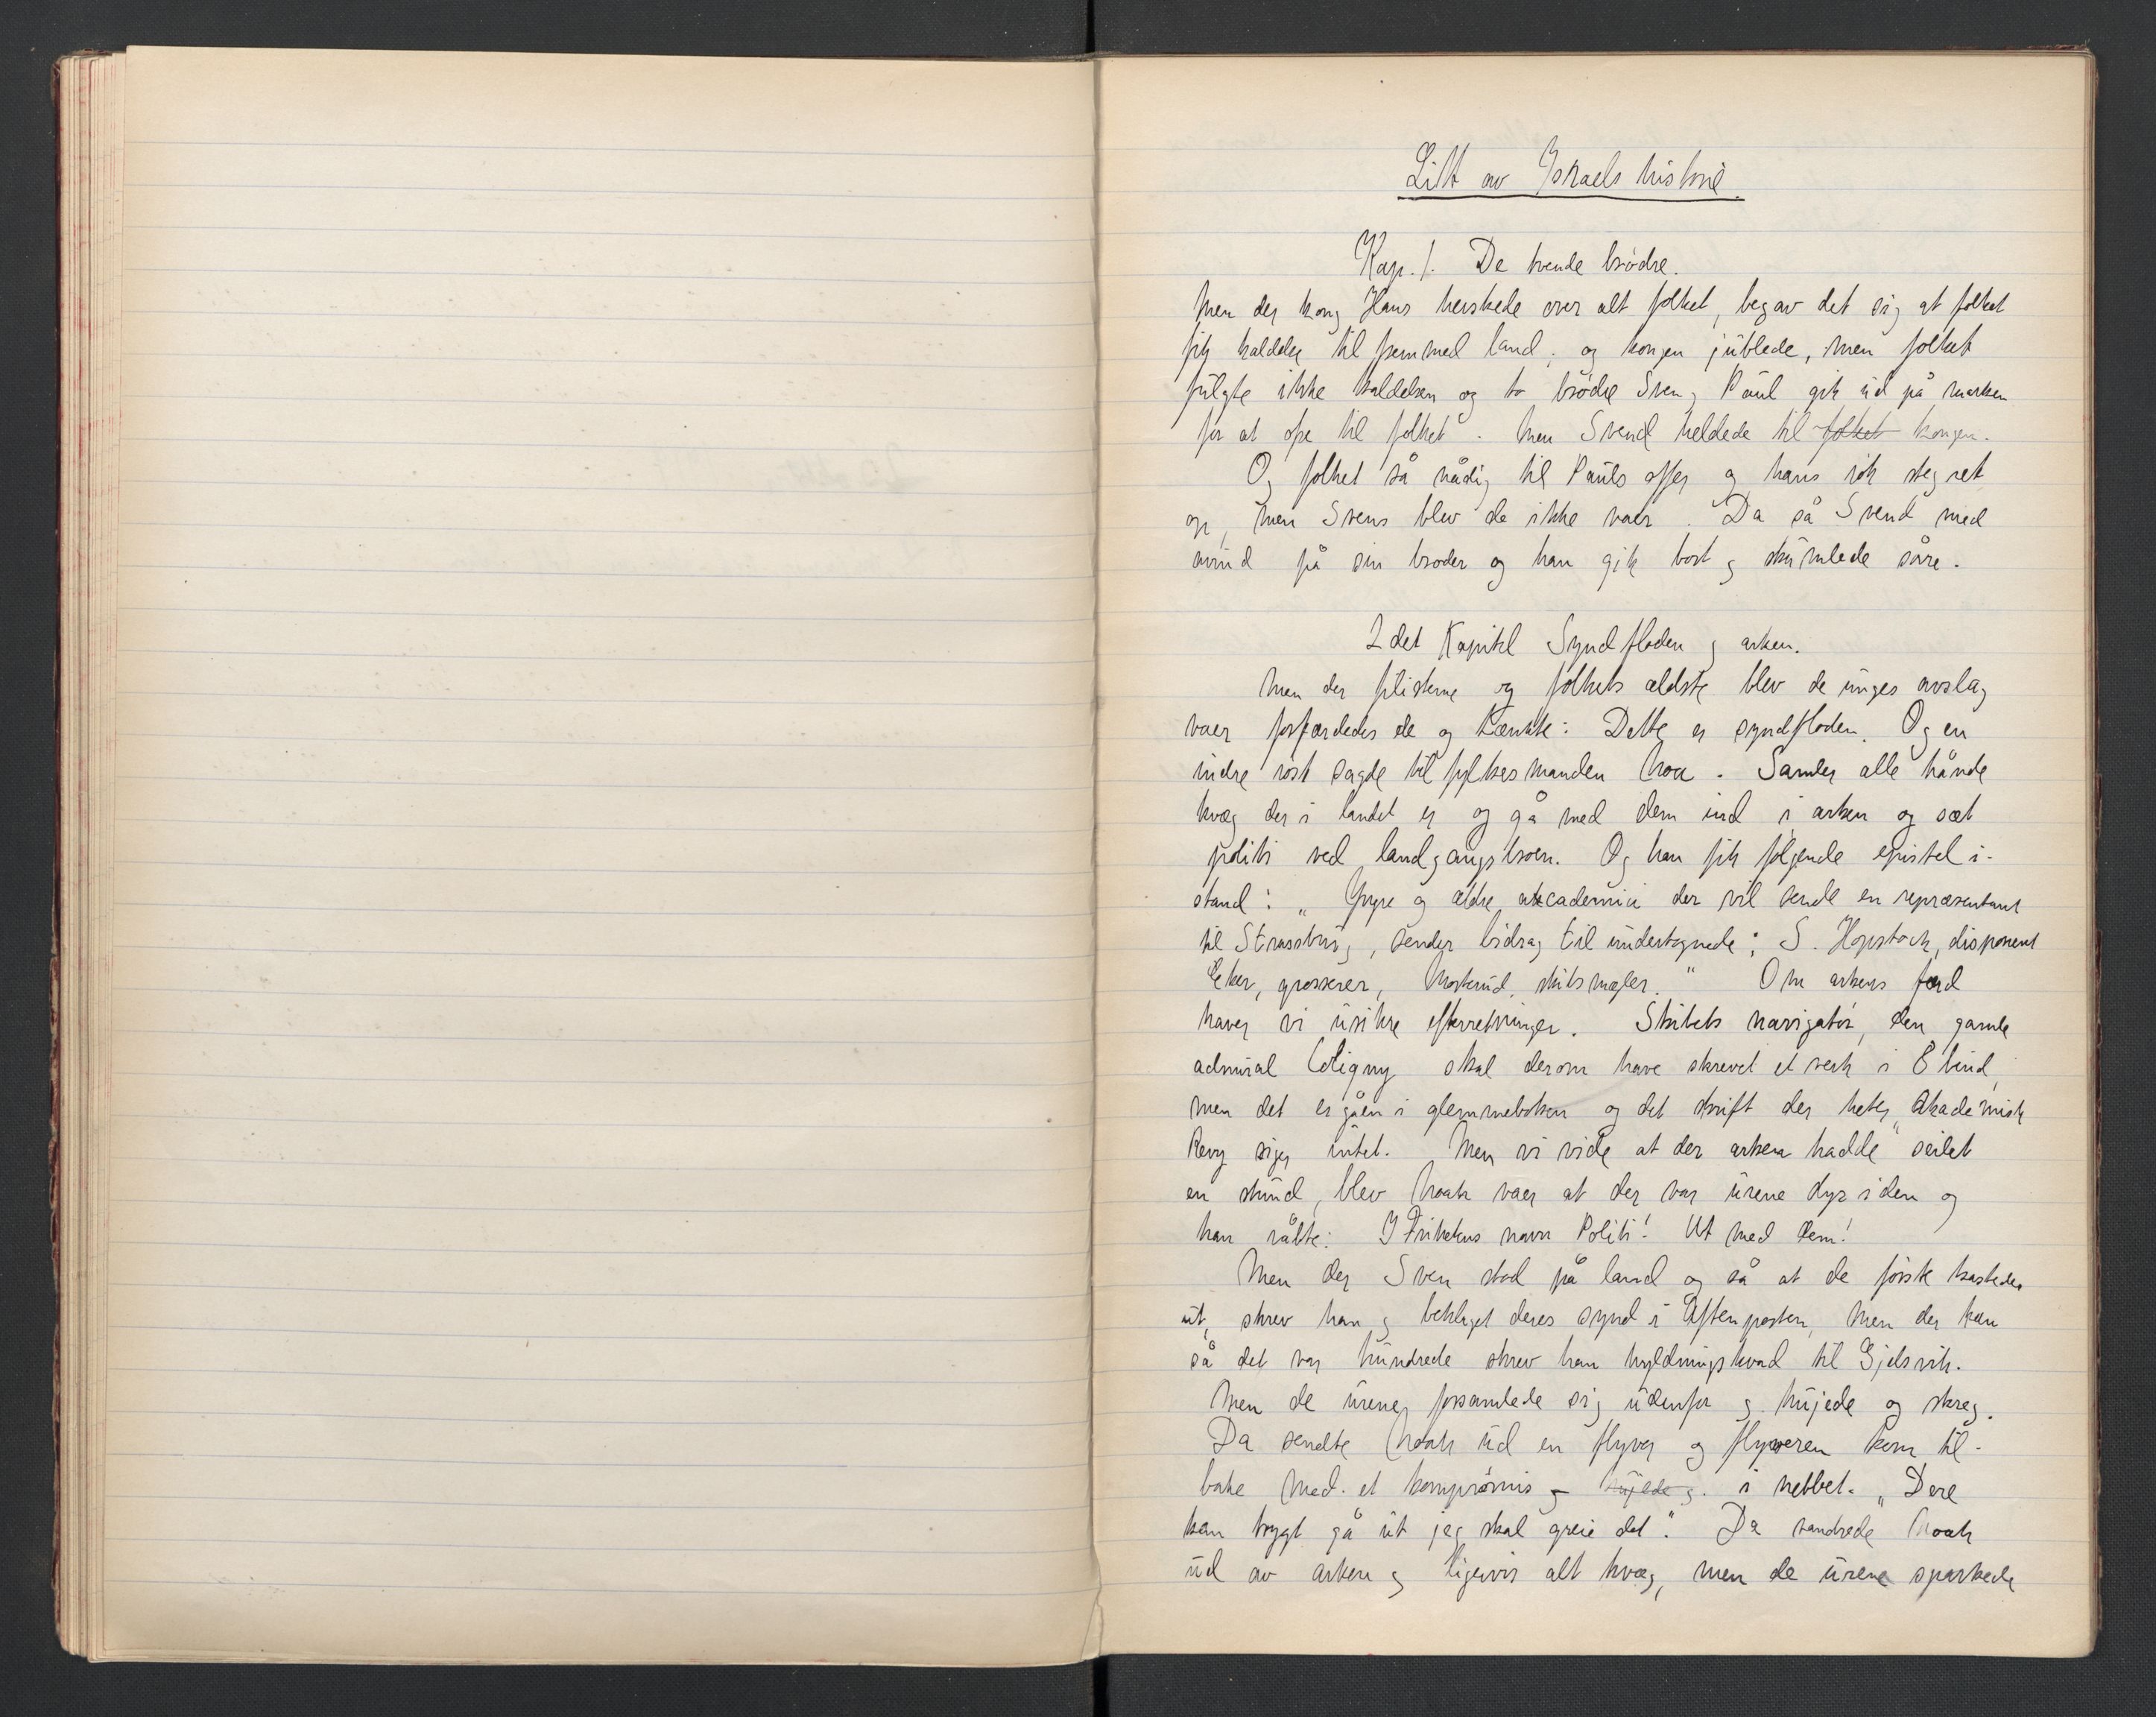 Litt av Israels historie.
Kap. 1. De tvende brødre.
Men der kong Hans herskede over alt folket, begav det sig at folket
fik kaldelse til fremmed land, og kongen jublede, men folket
fulgte ikke kaldelsen og to brødre Sven og Paul gik ud på marken
for at ofre til folket. Men Svend heldede til folket kongen.
Og folket så nådig til Pauls offer og hans røk steg ret
op, men Svens blev de ikke vaer. Da så Svend med
avind på sin broder og han gik bort og skumlede såre.
2det Kapitel Syndfloden og arken.
Men der filisterne og folkets ældste blev de unges avslag
vaer forfærdedes de og tænkte: Dette er syndfloden. Og en
indre røst sagde til fylkesmanden Noa. Samler alle hånde
kvæg der i landet er og gå med dem ind i arken og sæt
politi ved landgangsbroen. Og han fik følgende epistel i-
stand: „Yngre og ældre akademici der vil sende en repræsentant
til Strassburg, sender bidrag til undertegnede: S. Hopstock, disponent
Eker, grosserer, Moskrud, skibsmægler." Om arkens færd
haver vi usikre efterretninger. Skibets navigatør, den gamle
admiral Coligny skal derom have skrevet et verk i 8 bind,
men det er gåen i glemmeboken og det skrift der heter „Akademisk
Revy" siger intet. Men vi vide at der arken hadde seilet
en stund, blev Noah vaer at der var urene dyr i den og
han råbte: I Frihetens navn Politi! Ut med dem!
Men der Sven stod på land og så at de første kastedes
ut, skrev han og beklaget deres synd i Aftenposten, men der han
så det var hundrede skrev han hyldningskvad til Gjelsvik.
Men de urene forsamlede sig udenfor og hujede og skreg.
Da sendte Noah ud en flyver og flyveren kom til-
bake med et kompromis og hujede og i nebbet. „Dere
kan trygt gå ut jeg skal greie det". Da vandrede Noah
ud av arken og ligervis alt kvæg, men de urene sparkede